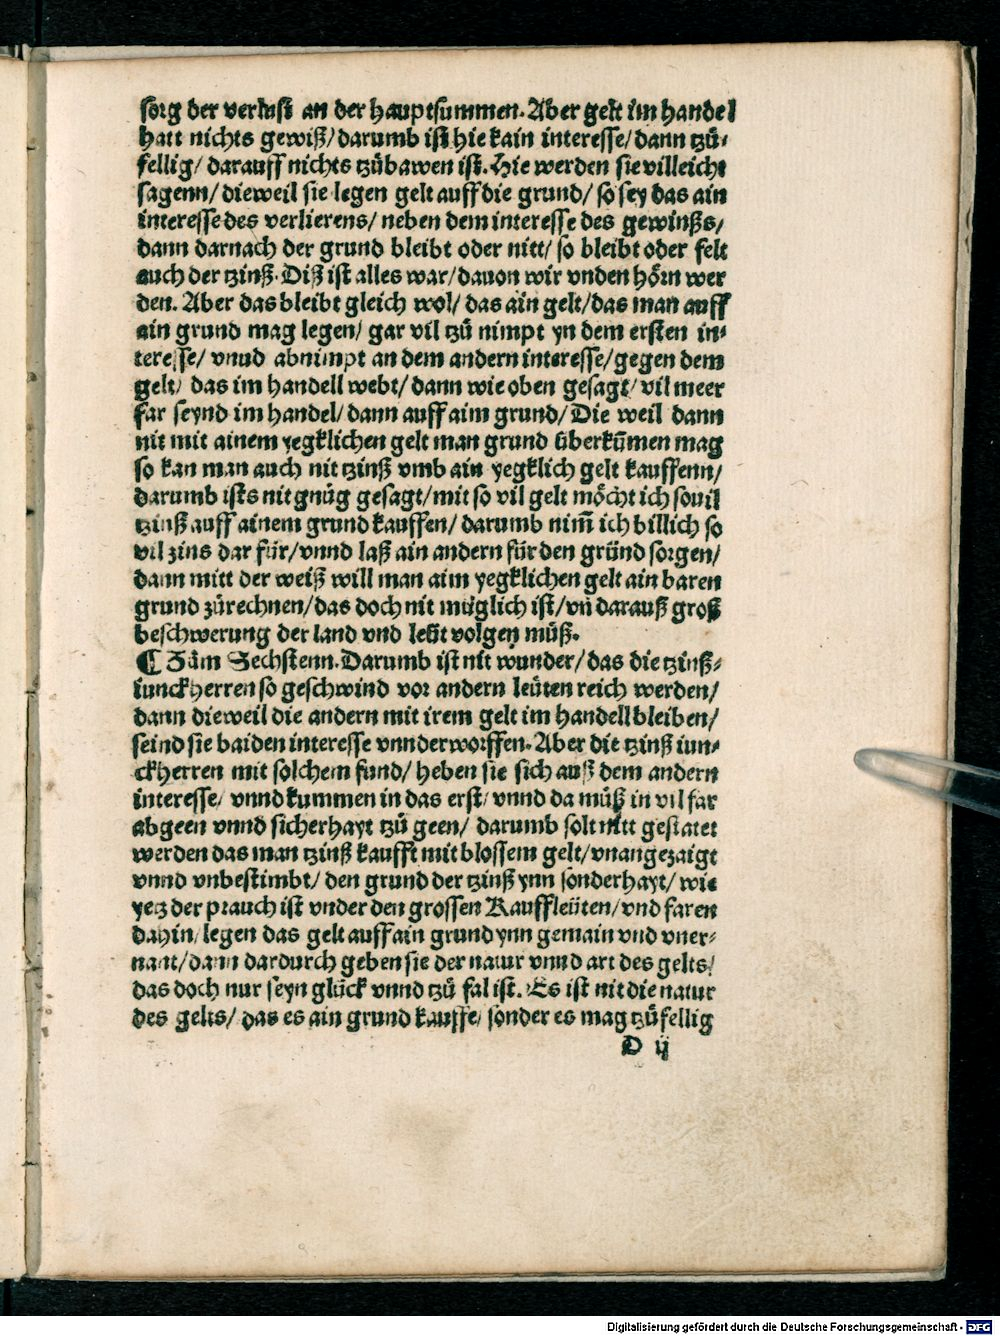 sorg der verlust an der hauptsummen. Aber gelt im handel
hatt nichts gewiß/ darumb ist hie kain interesse/ dann tzů-
fellig/ darauff nichts tzůbawen ist. Hie werden sie villeicht
sagenn/ dieweil sie legen gelt auff die grund/ so sey das ain
interesse des verlierens/ neben dem interesse des gewinßs/
dann darnach der grund bleibt oder nitt/ so bleibt oder felt
auch der tzinß. Diß ist alles war/ dauon wir vnden hörn wer
den. Aber das bleibt gleich wol/ das ain gelt/ das man auff
ain grund mag legen/ gar vil tzů nimpt yn dem ersten in-
teresse/ vnnd abnimpt an dem andern interesse/ gegen dem
gelt/ das im handell webt/ dann wie oben gesagt/ vil meer
far seynd im handel/ dann auff aim grund/ Die weil dann
nit mit ainem yegklichen gelt man grund überkümen mag
so kan man auch nit tzinß vmb ain yegklich gelt kauffenn/
darumb ists nit gnůg gesagt/ mit so vil gelt möcht ich souil
tzinß auff ainem grund kauffen/ darumb nim̃ ich billich so
vil zins dar für/ vnnd laß ain andern für den gründ sorgen/
dann mitt der weiß will man aim yegklichen gelt ain baren
grund zůrechnen/ das doch nit müglich ist/ vñ darauß groß
beschwerung der land vnd leüt volgen můß.
¶ Zům Sechstenn. Darumb ist nit wunder/ das die tzinß-
iunckherren so geschwind vor andern leüten reich werden/
dann dieweil die andern mit irem gelt im handell bleiben/
seind sie baiden interesse vnnderworffen. Aber die tzinß iun-
ckherren mit solchem fund/ heben sie sich auß dem andern
interesse/ vnnd kummen in das erst/ vnnd da můß in vil far
abgeen vnnd sicherhayt tzů geen/ darumb solt nitt gestatet
werden das man tzinß kaufft mit blossem gelt/ vnangezaigt
vnnd vnbestimbt/ den grund der tzinß ynn sonderhayt/ wie
yetz der prauch ist vnder den grossen Kauffleüten/ vnd faren
dahin/ legen das gelt auff ain grund ynn gemain vnd vner-
nant/ dann dardurch geben sie der natur vnnd art des gelts/
das doch nur seyn glück vnnd tzů fal ist. Es ist nit die natur
des gelts/ das es ain grund kauffe/ sonder es mag tzůfellig
D ij
Digitalisierung gefördert durch die Deutsche Forschungsgemeinschaft - DFG